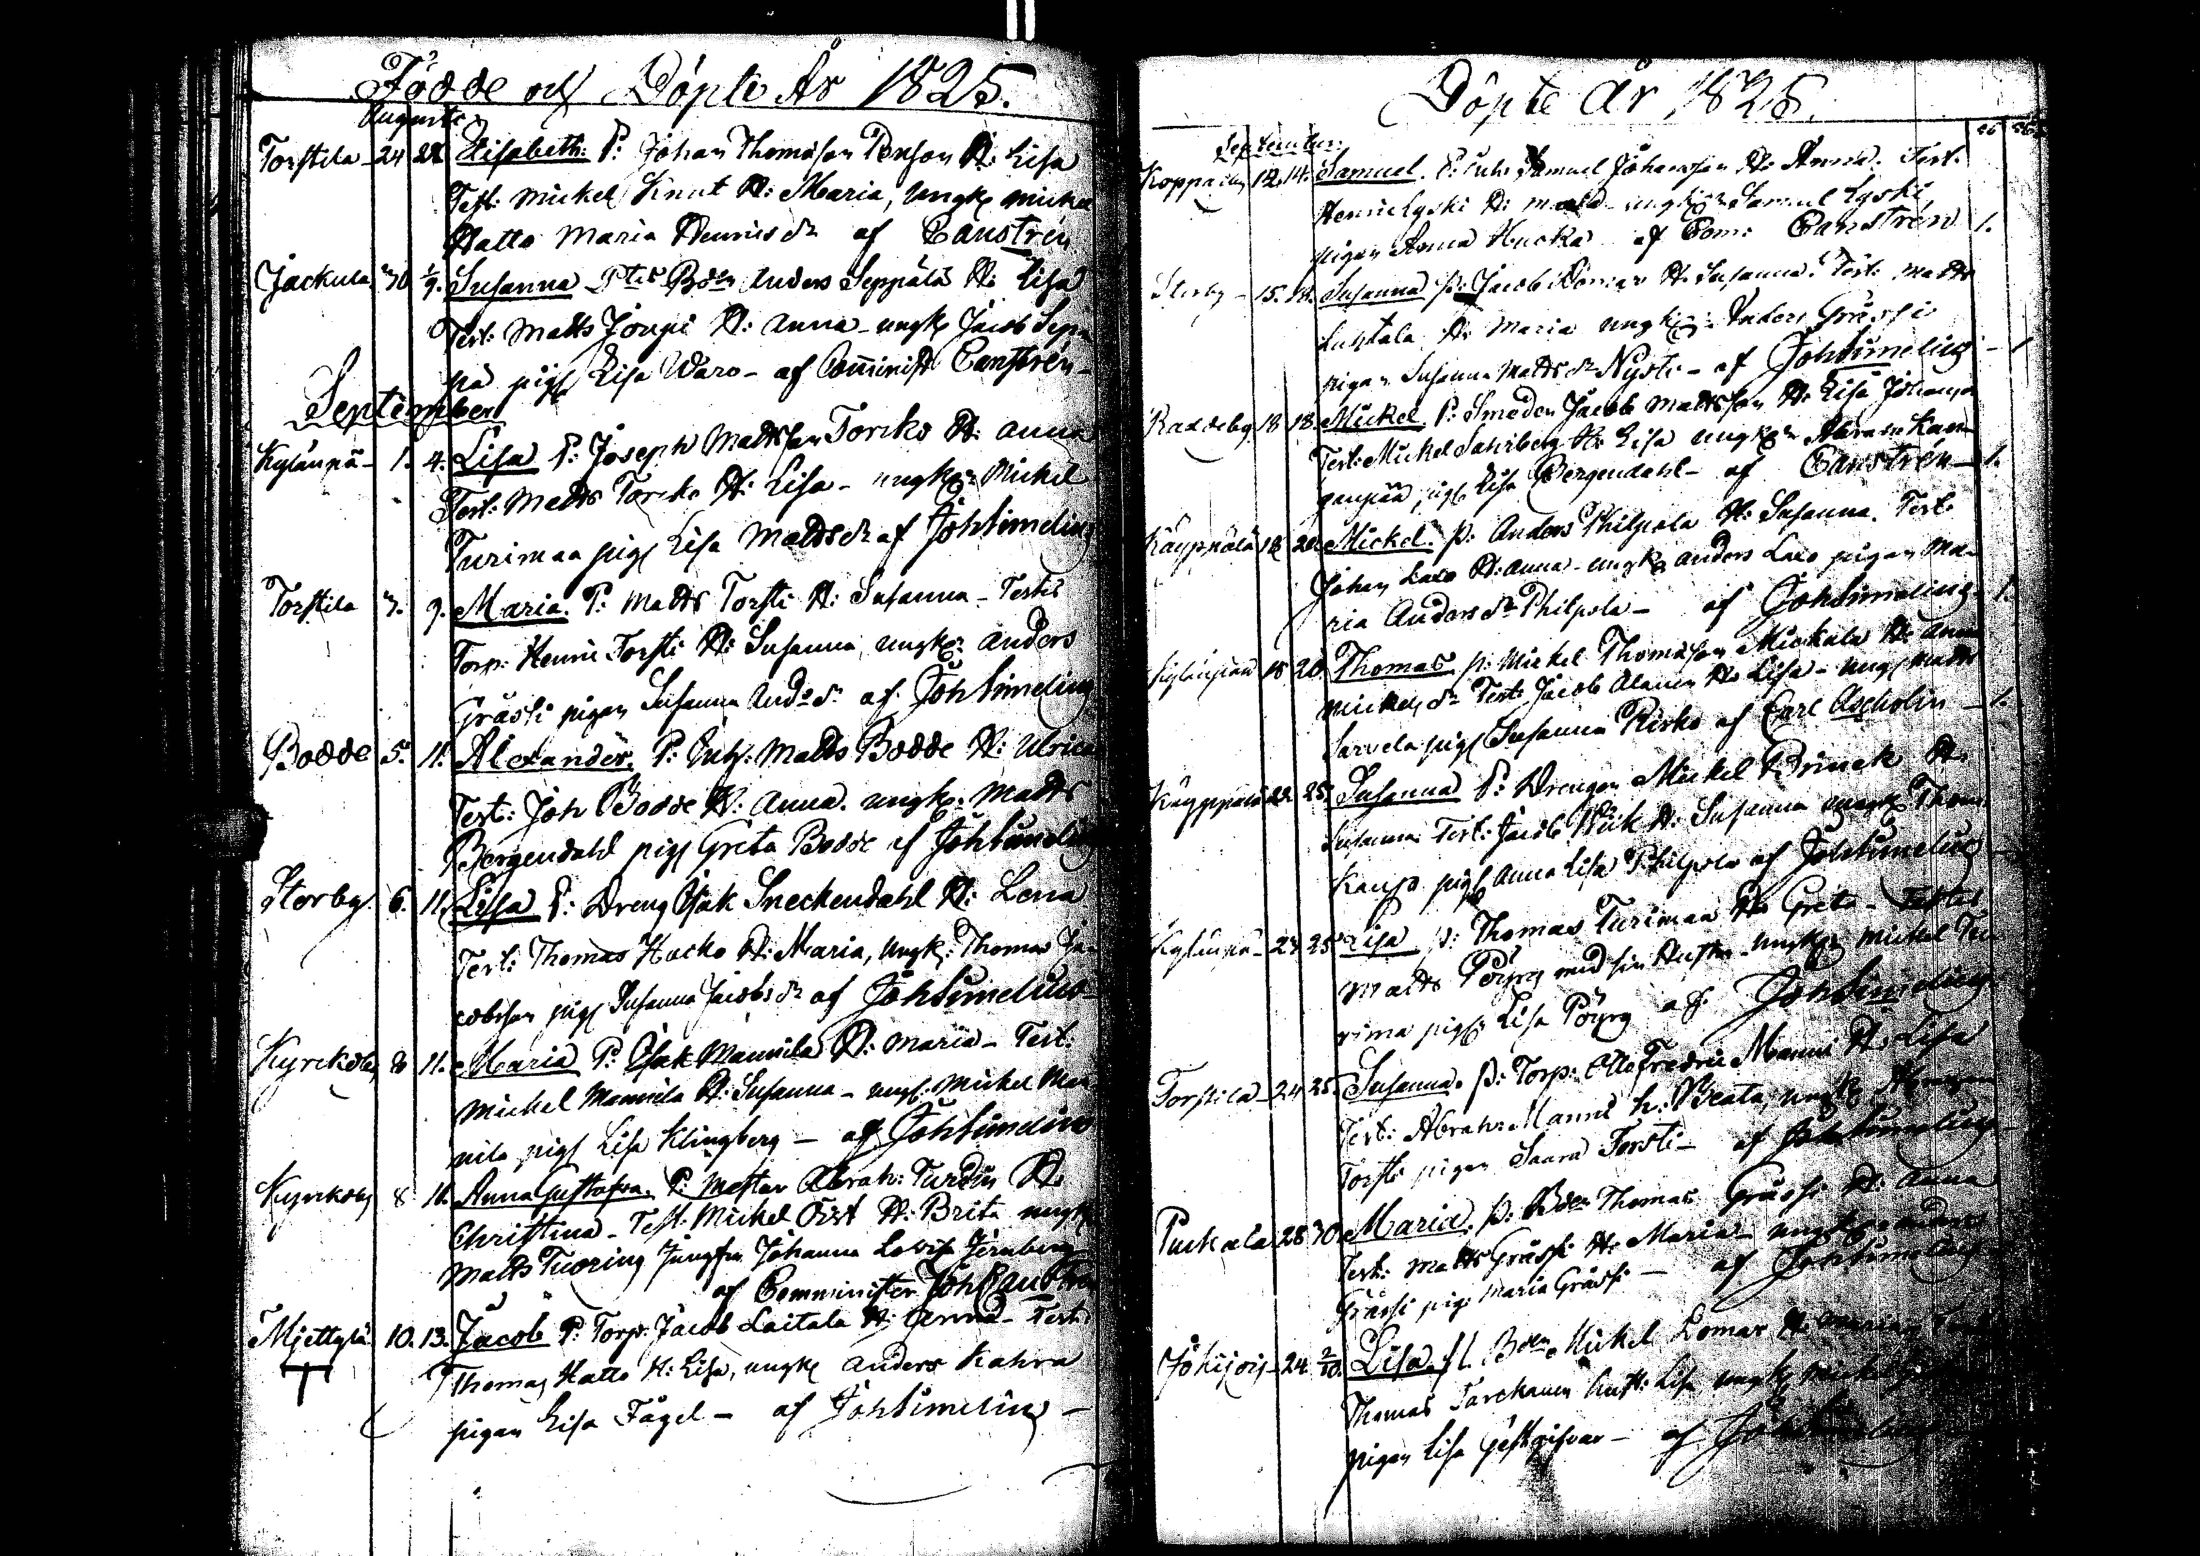 Födde och Döpte År 1825.
Augusti
Torstila 24 28 Elisabeth: P: Johan Thomasson Penson H: Lisa
Test: Mickel Knut H: Maria, ungk mickel
Hatto Maria Henricsdr af Canstrén
Jackula 30 1/9. Susanna Ptes Bdn Anders Seppälä H: Lisa
Test: Matts Joupi H: Anna - ungk Jacob Sep
pä pigs Lisa Waro - af Comminist Canstrén -
September
Kylänpä - 1. 4. Lisa P: Joseph Mattsson Torcko H: Anna
Test: Matts Torcko H: Lisa - ungk: Mickel
Turimaa pigs Lisa Mattsdr af Joh Limelius
Torstila 7. 9. Maria. P: Matts Torsti H: Susanna - Testes
Torp: Henric Torsti H: Susanna, ungk: Anders
Grässi pigan Susanna Andsdr af Joh Limelius
Bodde 5. 11. Alexander. P: Inh: Matts Bodde H: Ulrica
Test: Joh Bodde H: Anna. ungk: Matts
Bergendahl pigs Greta Bodde af Joh Limelius
Storby. 6. 11. Lisa P: Dreng Isak Sneckendahl H: Lena
Test: Thomas Hacko H: Maria, ungk: Thomas Ja-
cobsson pigs Susanna Jacobsdr af Joh Limelius
Kyrckoby 8 11. Maria P: Isak Mannila H: Maria - Test:
Mickel Mannila H: Susanna - ungk: Mickel Man
nila pigs Lisa Klingberg - af Joh Limelius
Kyrckoby 8 11. Anna Gustafva. P: Mästar Abrah: Turdin H:
Christina - Test: Mickel Öist H: Brita ungk
Matts Tuoring Jungfru Johanna Lovisa Jernberg
af Comminister Joh Canstrén
Mjettylä 10. 13. Jacob P: Torp: Jacob Laitala H: Anna - Test:
Thomas Hatto H: Lisa, ungk Anders Kahra
pigan Lisa Fågel - af Joh Limelius -
Döpte År 1825.
September:
Koppaily 12. 14. Samuel. P: Inh: Samuel Johansson H: Anna. Test:
Henric Lyski H: ungk: Samuel Lyski
pigan Anna Hucka af Com: Canstrén 1.
Storby - 15. 18. Susanna P: Jacob H: Susanna: Test: Matts
Luhtala H: Maria ungk: Anders Grässi
pigan Susanna Mattsdr Nysti - af Joh Limelius - 1
Raddeby 18 18. Mickel P: Smeden Jacob Mattsson H: Lisa Johansdr
Test: Mickel Sahrberg H: Lisa ungk: Abram Kan
ganpää, pigs Lisa Bergendahl - af Canstrén - 1.
Käyppälä 18 20. Mickel. P: Anders Philpola H: Susanna. Test:
Johan Laxo H: Anna - ungk: Anders Laxo pigan Ma-
ria Andersdr Philpola - af Joh Limelius. 1.
Kylänpää 18 20. Thomas P: Mickel Thomasson Mickala H: Anna
Mickelsdr Test: Jacob Alanen H: Lisa - ungs Matts
Sarvela pigs Susanna Risko af Carl Ascholin - 1.
Käyppälä 22. 25. Susanna P: Drengen Mickel Brinck H:
Susanna Test: Jacob Wik H: Susanna ungk Thom
Kaupo pigs Anna Lisa Philpola af Joh Limelius -
Kylänpä - 23 25 Lisa P: Thomas Turimaa H: Greta - Testes
Matts Pöyry med sin Hustru - ungk: Mickel Tu
rima pigs Lisa Pöyry af Joh Limelius
Torstila 24 25. Susanna. P: Torp: Otto Fredric Manni H: Lisa
Test: Abrah: Manni h: Beata, ungk Abraham
Torsti pigan Saara Torsti - af Joh Limelius -
Puckala 28 30. Maria. P: Bdn Thomas Grässi H: Anna
Test: Matts Grässi H: Maria - ungk: Anders
Grässi pigs Maria Grässi - af Joh Limelius -
Johijois - 24 2/10. Lisa. Bdn Mickel Lomar H: Maria Test
Thomas Tarckanen hust: Lisa ungk Mickel
pigan Lisa Gästgifvar - af Joh Limelius